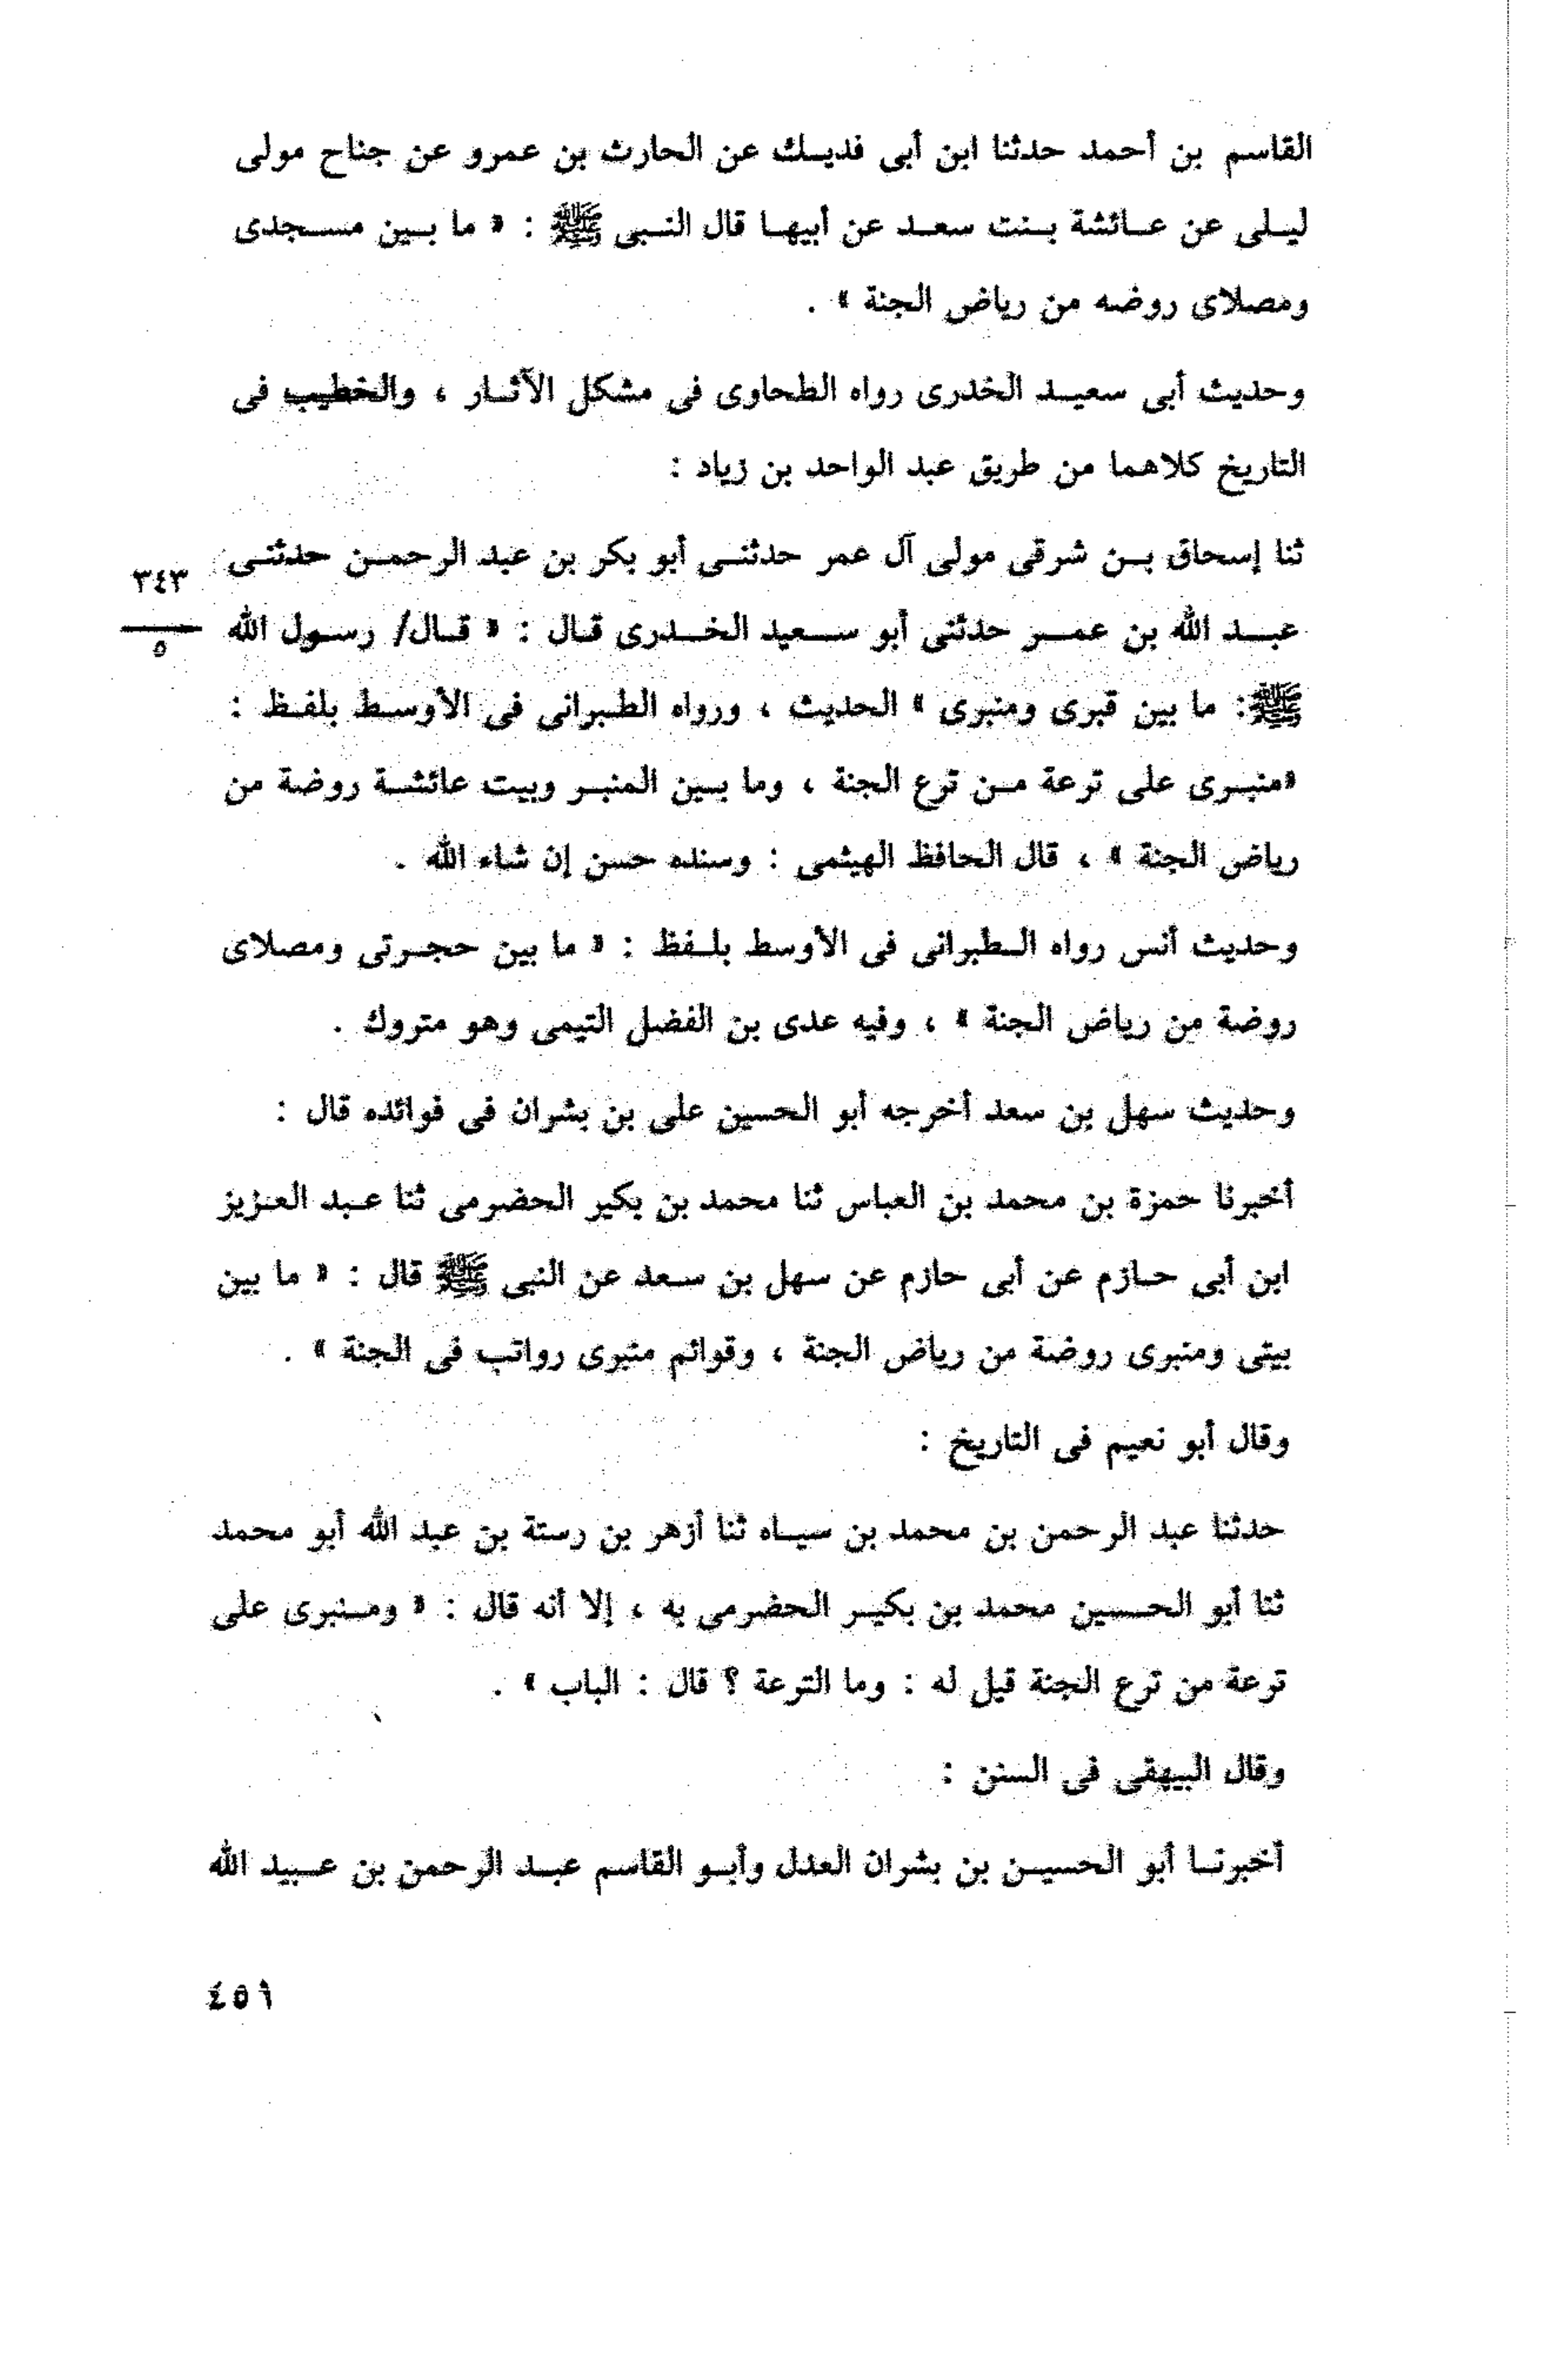 القاسم بن أحمد حدثنا ابن أبى فديـك عن الحارث بن عمرو عن جناح مولى
ليـلى عن عـائشة بـنت سعـد عن أبيهـا قال النـبى ﷺ : « ما بـين مسـجدى
ومصلاى روضه من رياض الجنة » .
وحديث أبى سعيـد الخدرى رواه الطحاوى فى مشكل الآثـار ، والخطيب فى
التاريخ كلاهما من طريق عبد الواحد بن زياد :
ثنا إسحاق بـن شرقى مولى آل عمر حدثنـى أبو بكر بن عبد الرحمـن حدثنـى
٣٤٣
٥
عبـد الله بن عمـر حدثنى أبو سـعيد الخـدرى قـال : « قـال/ رسـول الله
ﷺ: ما بين قبرى ومنبرى » الحديث ، ورواه الطـبرانى فى الأوسـط بلفـظ :
«منبـرى على ترعة مـن ترع الجنة ، وما بـين المنبـر وبيت عائشـة روضة من
رياض الجنة » ، قال الحافظ الهيثمى : وسنده حسن إن شاء الله .
وحديث أنس رواه الـطبرانى فى الأوسط بلـفظ : « ما بين حجـرتى ومصلاى
روضة من رياض الجنة » ، وفيه عدى بن الفضل التيمى وهو متروك .
وحديث سهل بن سعد أخرجه أبو الحسين على بن بشران فى فوائده قال :
أخبرنا حمزة بن محمد بن العباس ثنا محمد بن بكير الحضرمى ثنا عـبد العـزيز
ابن أبى حـازم عن أبى حازم عن سهل بن سـعد عن النبى ﷺ قال : « ما بين
بيتى ومنبرى روضة من رياض الجنة ، وقوائم منبرى رواتب فى الجنة » .
وقال أبو نعيم فى التاريخ :
حدثنا عبد الرحمن بن محمد بن سيـاه ثنا أزهر بن رستة بن عبد الله أبو محمد
ثنا أبو الحـسين محمد بن بكيـر الحضرمى به ، إلا أنه قال : « ومـنبرى على
ترعة من ترع الجنة قيل له : وما الترعة ؟ قال : الباب » .
وقال البيهقى فى السنن :
أخبرنـا أبو الحسيـن بن بشران العدل وأبـو القاسم عبـد الرحمن بن عـبيد الله
٤٥٦